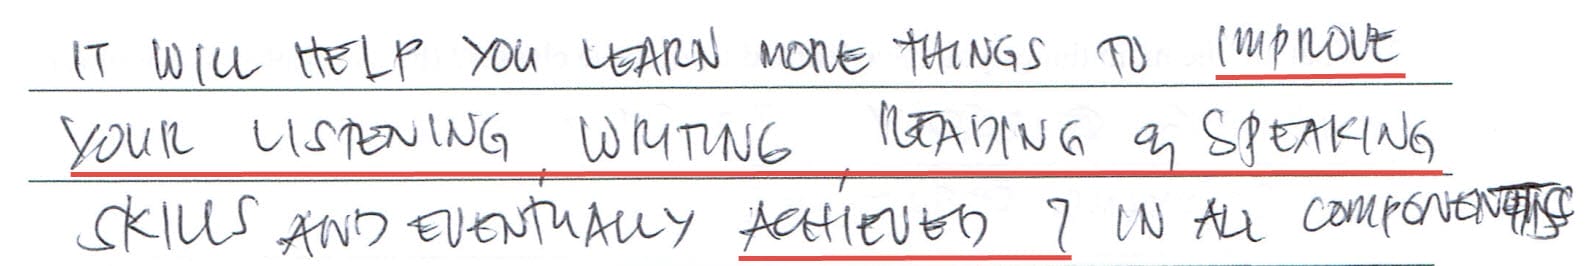 IT WILL HELP YOU LEARN MORE THINGS TO IMPROVE
YOUR LISTENING, WRITING, READING & SPEAKING
SKILLS AND EVENTUALLY ACHIEVED 7 IN ALL COMPONENTS